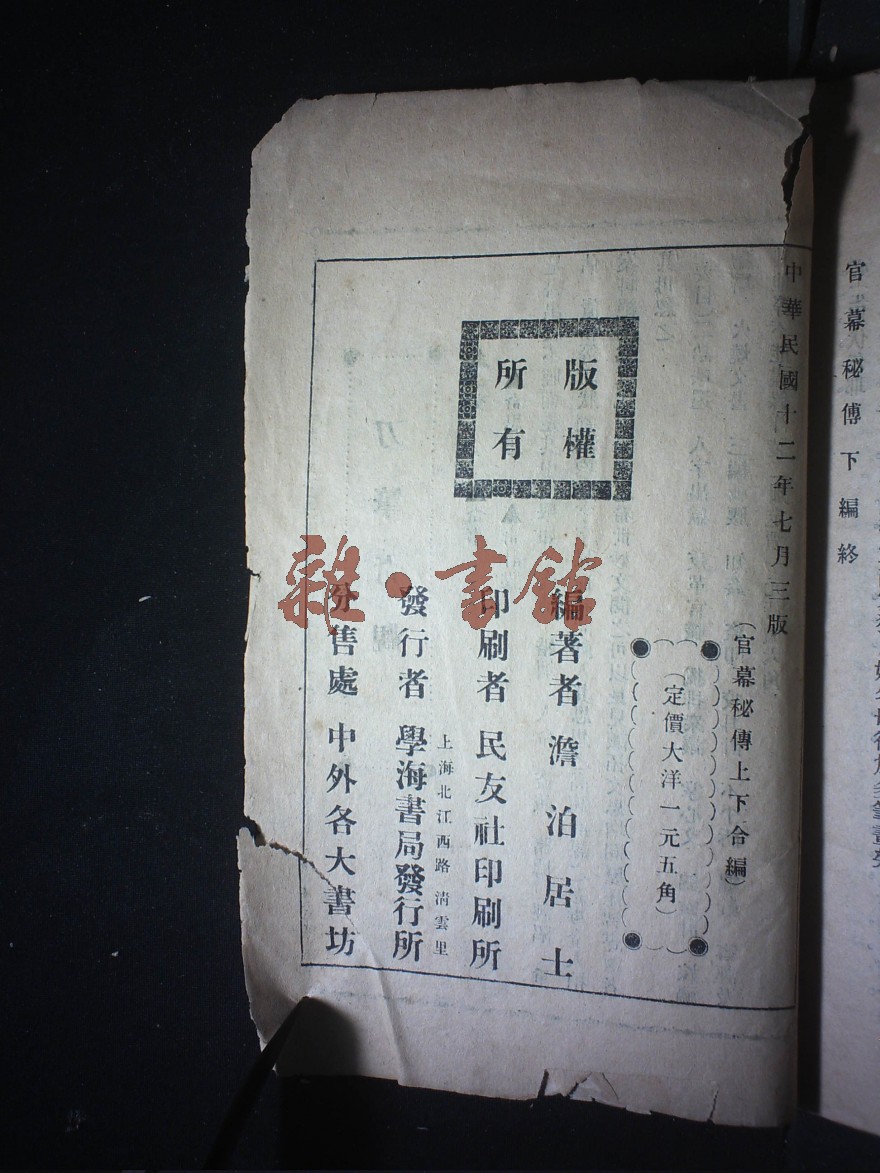 官幕秘傳下編終
中華民國十二年七月三版
(官幕秘傳上下合編)
(定價大洋一元五角)
版權
所有
編著者 澹泊居士
印刷者 民友社印刷所
上海北江西路清雲里
發行者 學海書局發行所
分售處 中外各大書坊
雜·書館